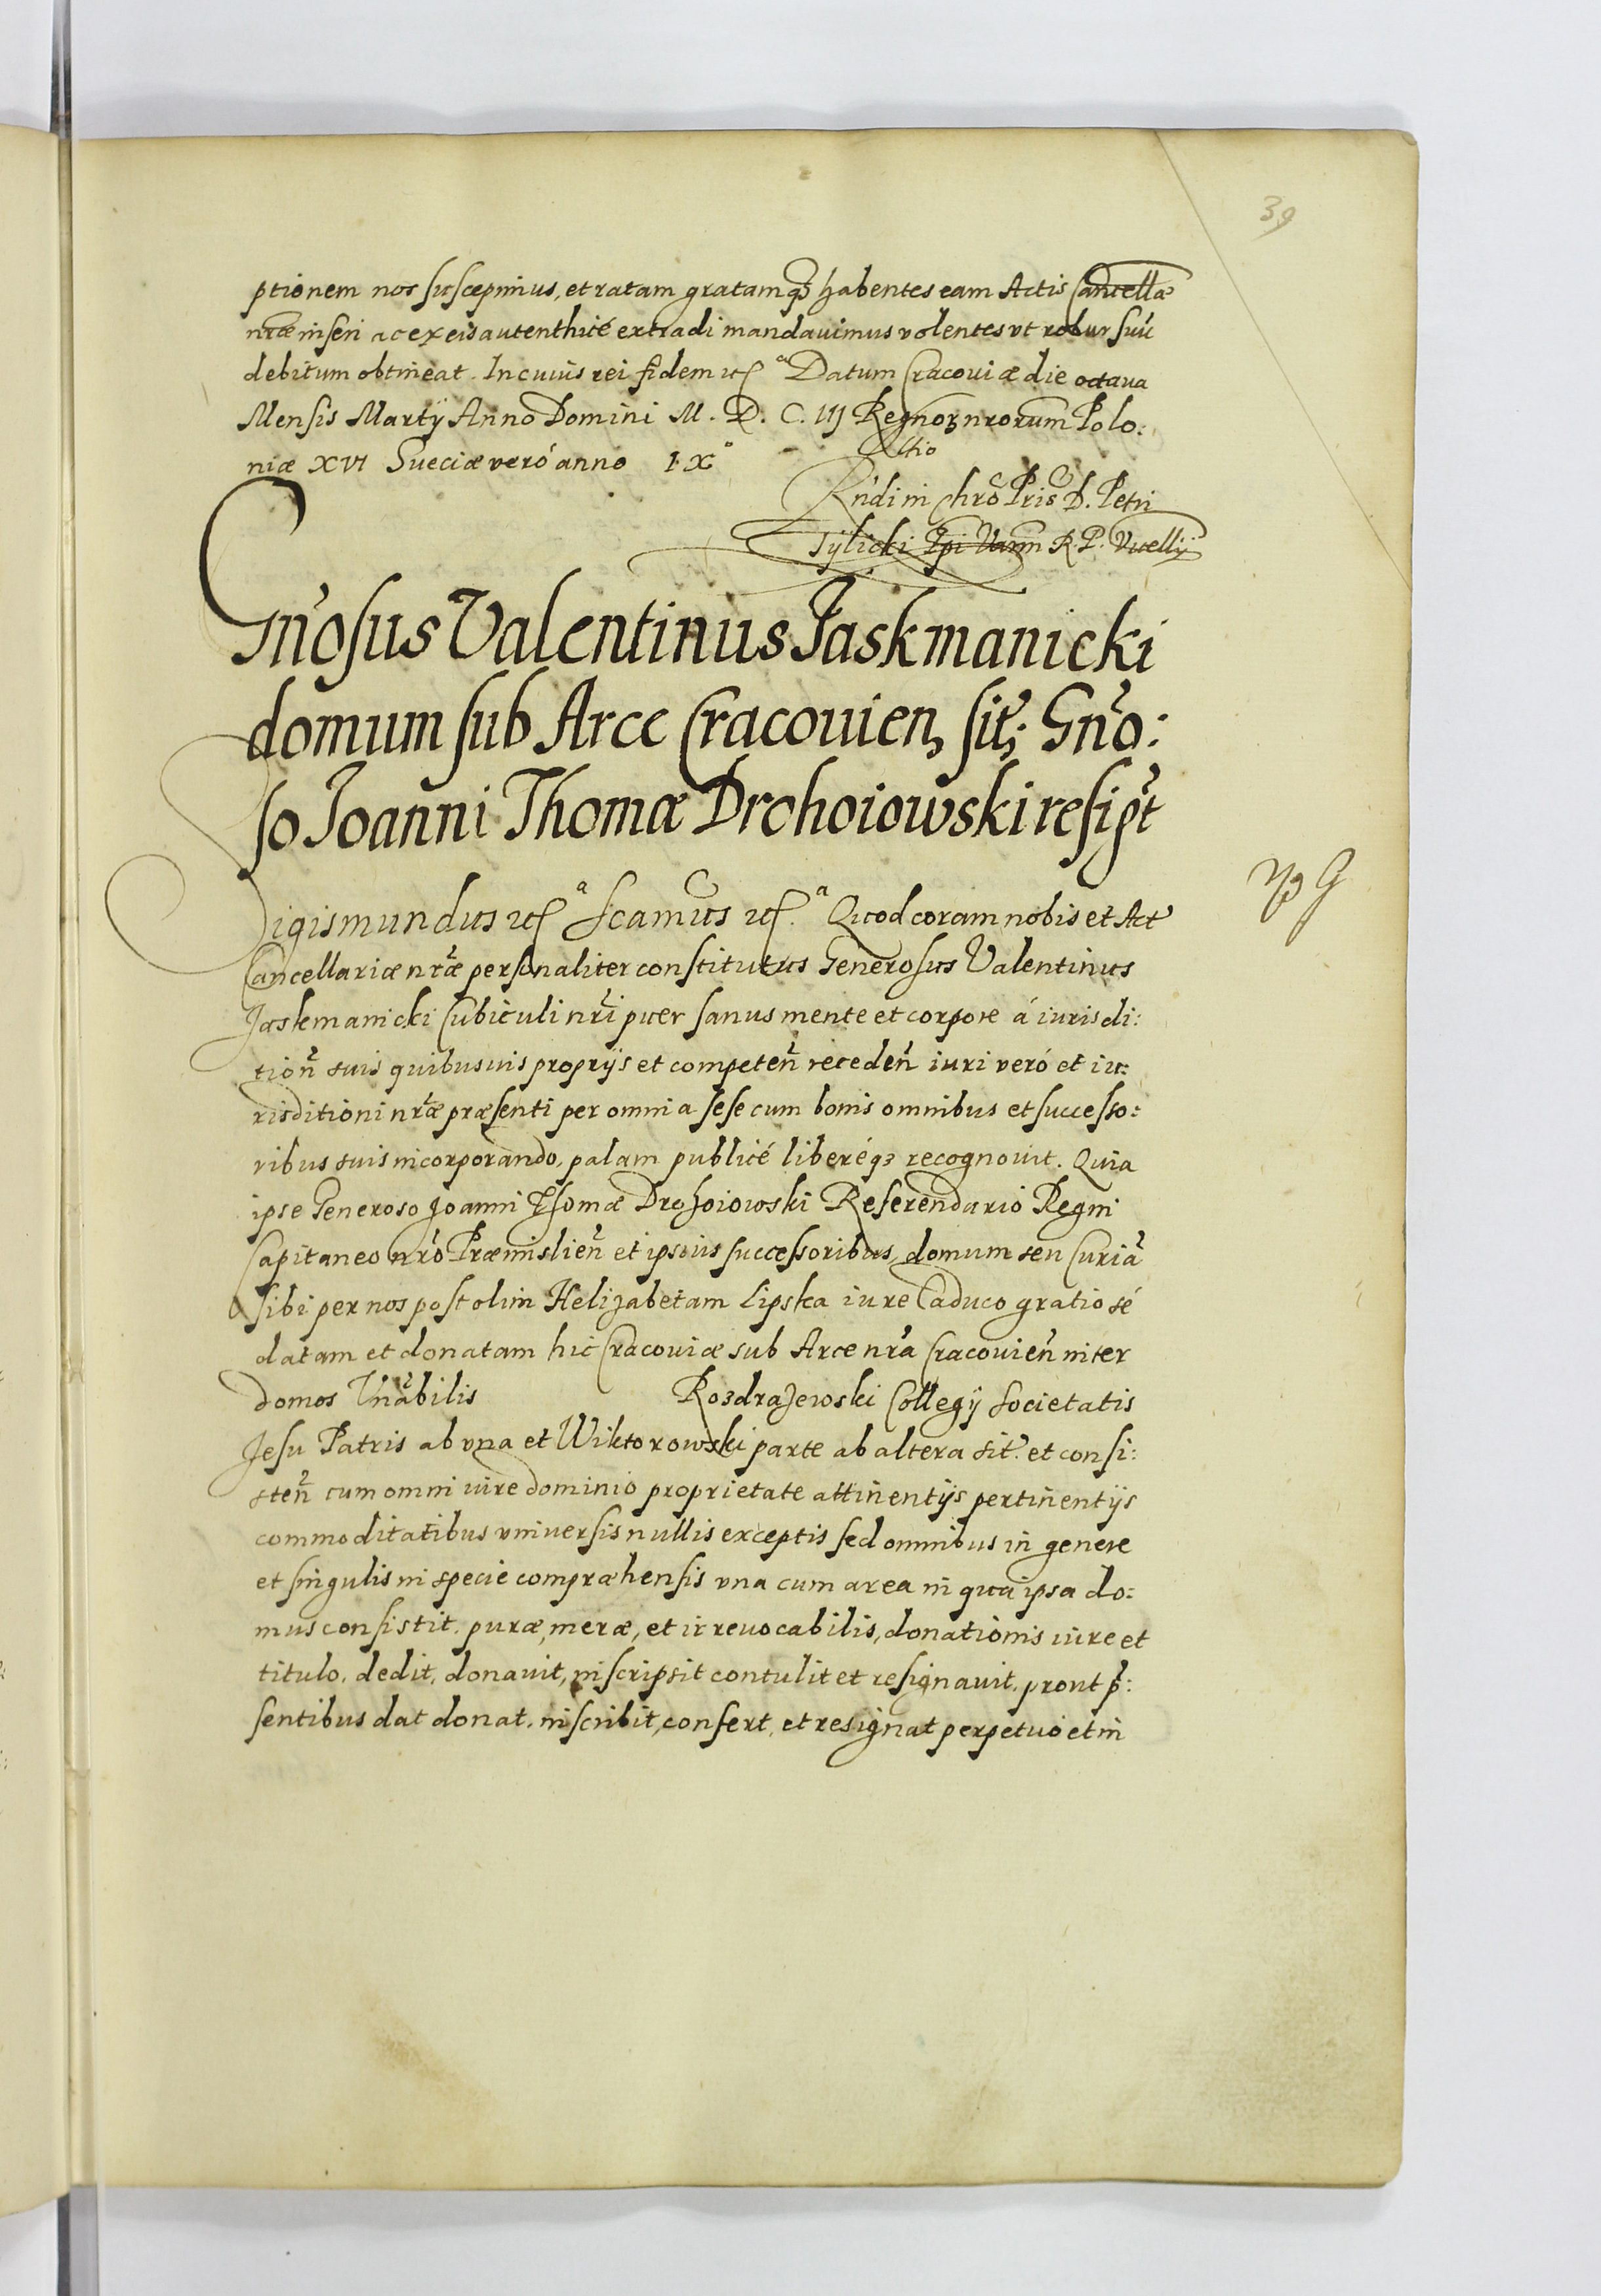 39
ptionem nos suscepimus, et ratam gratamq3 habentes eam Actis Cancellae
nrae inseri ac ex eis autenthicé extradi mandauimus volentes vt robur suū
debitum obtineat. In cuius rei fidem etc̃ Datum Cracouiæ die octaua
Mensis Martÿ Anno Domini M. D. C. III Regnoꝝ nrorum Polo:
niæ XVI Sueciæ veró anno IXº
Rñdi in Chrõ Pris D. Petri
Tÿlicki Epi Varm R. P. Vicellÿ
Gñosus Valentinus Jaskmanicki
domum sub Arce Cracouien, sit; Gño:
so Joanni Thomæ Drohoiowski resigt
Sigismundus etc̃ Scamus etc̃. Quod coram nobis et Act
Cancellariæ nr̃æ personaliter constitutus Generosus Valentinus
Jaskmanicki Cubiculi nr̃i puer sanus mente et corpore á iurisdi:
tioñ suis quibusuis proprÿs et competeñ recedeñ iuri veró et iu:
risditioni nr̃æ præsenti per omnia sese cum bonis omnibus et successo:
ribus suis incorporando, palam publicé liberéq3 recognouit. Quia
ipse Generoso Joanni Thomæ Drohoiowski Referendario Regni
Capitaneo nr̃o Præmislieñ et ipsius successoribus, domum seu Curiã
sibi per nos post olim Helizabetam Lipska iure Caduco gratiosé
datam et donatam hic Cracouiæ sub Arce nr̃a Cracouieñ inter
domos Vnãbilis Rozdrazewski Collegÿ Societatis
Jesu Patris ab vna et Wiktorowski parte ab altera sit. et consi:
steñ cum omni iure dominio proprietate attinentÿs pertinentÿs
commoditatibus vniuersis nullis exceptis sed omnibus in genere
et singulis in specie compræhensis vna cum area in qua ipsa do:
mus consistit. puræ, meræ, et irreuocabilis, donationis iure et
titulo, dedit, donauit, inscripsit contulit et resignauit. prout p̃:
sentibus dat donat. inscribit, confert, et resignat perpetuo et in